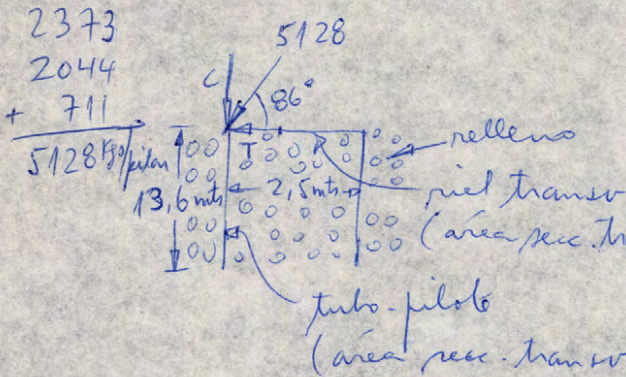 2373
2044
+ 711
5128 Kgs/pilar
5128
C
86°
T
relleno
13,6 mts
2,5mts
riel transv
(área secc. tr
tubo-pilote
(área secc. transv